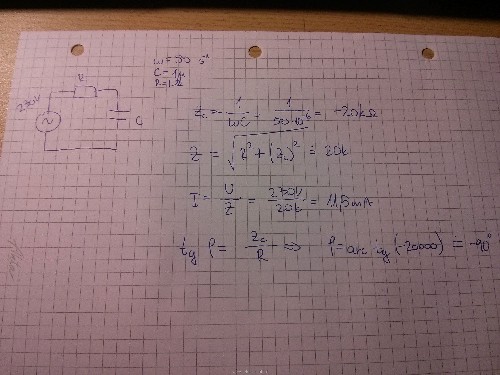 ω=50 s⁻¹
C=1μ
R=1Ω
R
230V
C
Z_c = -1/ωC = -1/(50·10⁻⁶) = -20kΩ
Z = √(R²+(Z_c)²) ≐ 20k
I = U/Z = 230V/20k = 11,5mA
tg φ = Z_c/R ⇒ φ = arc tg (-20000) ≐ -90°